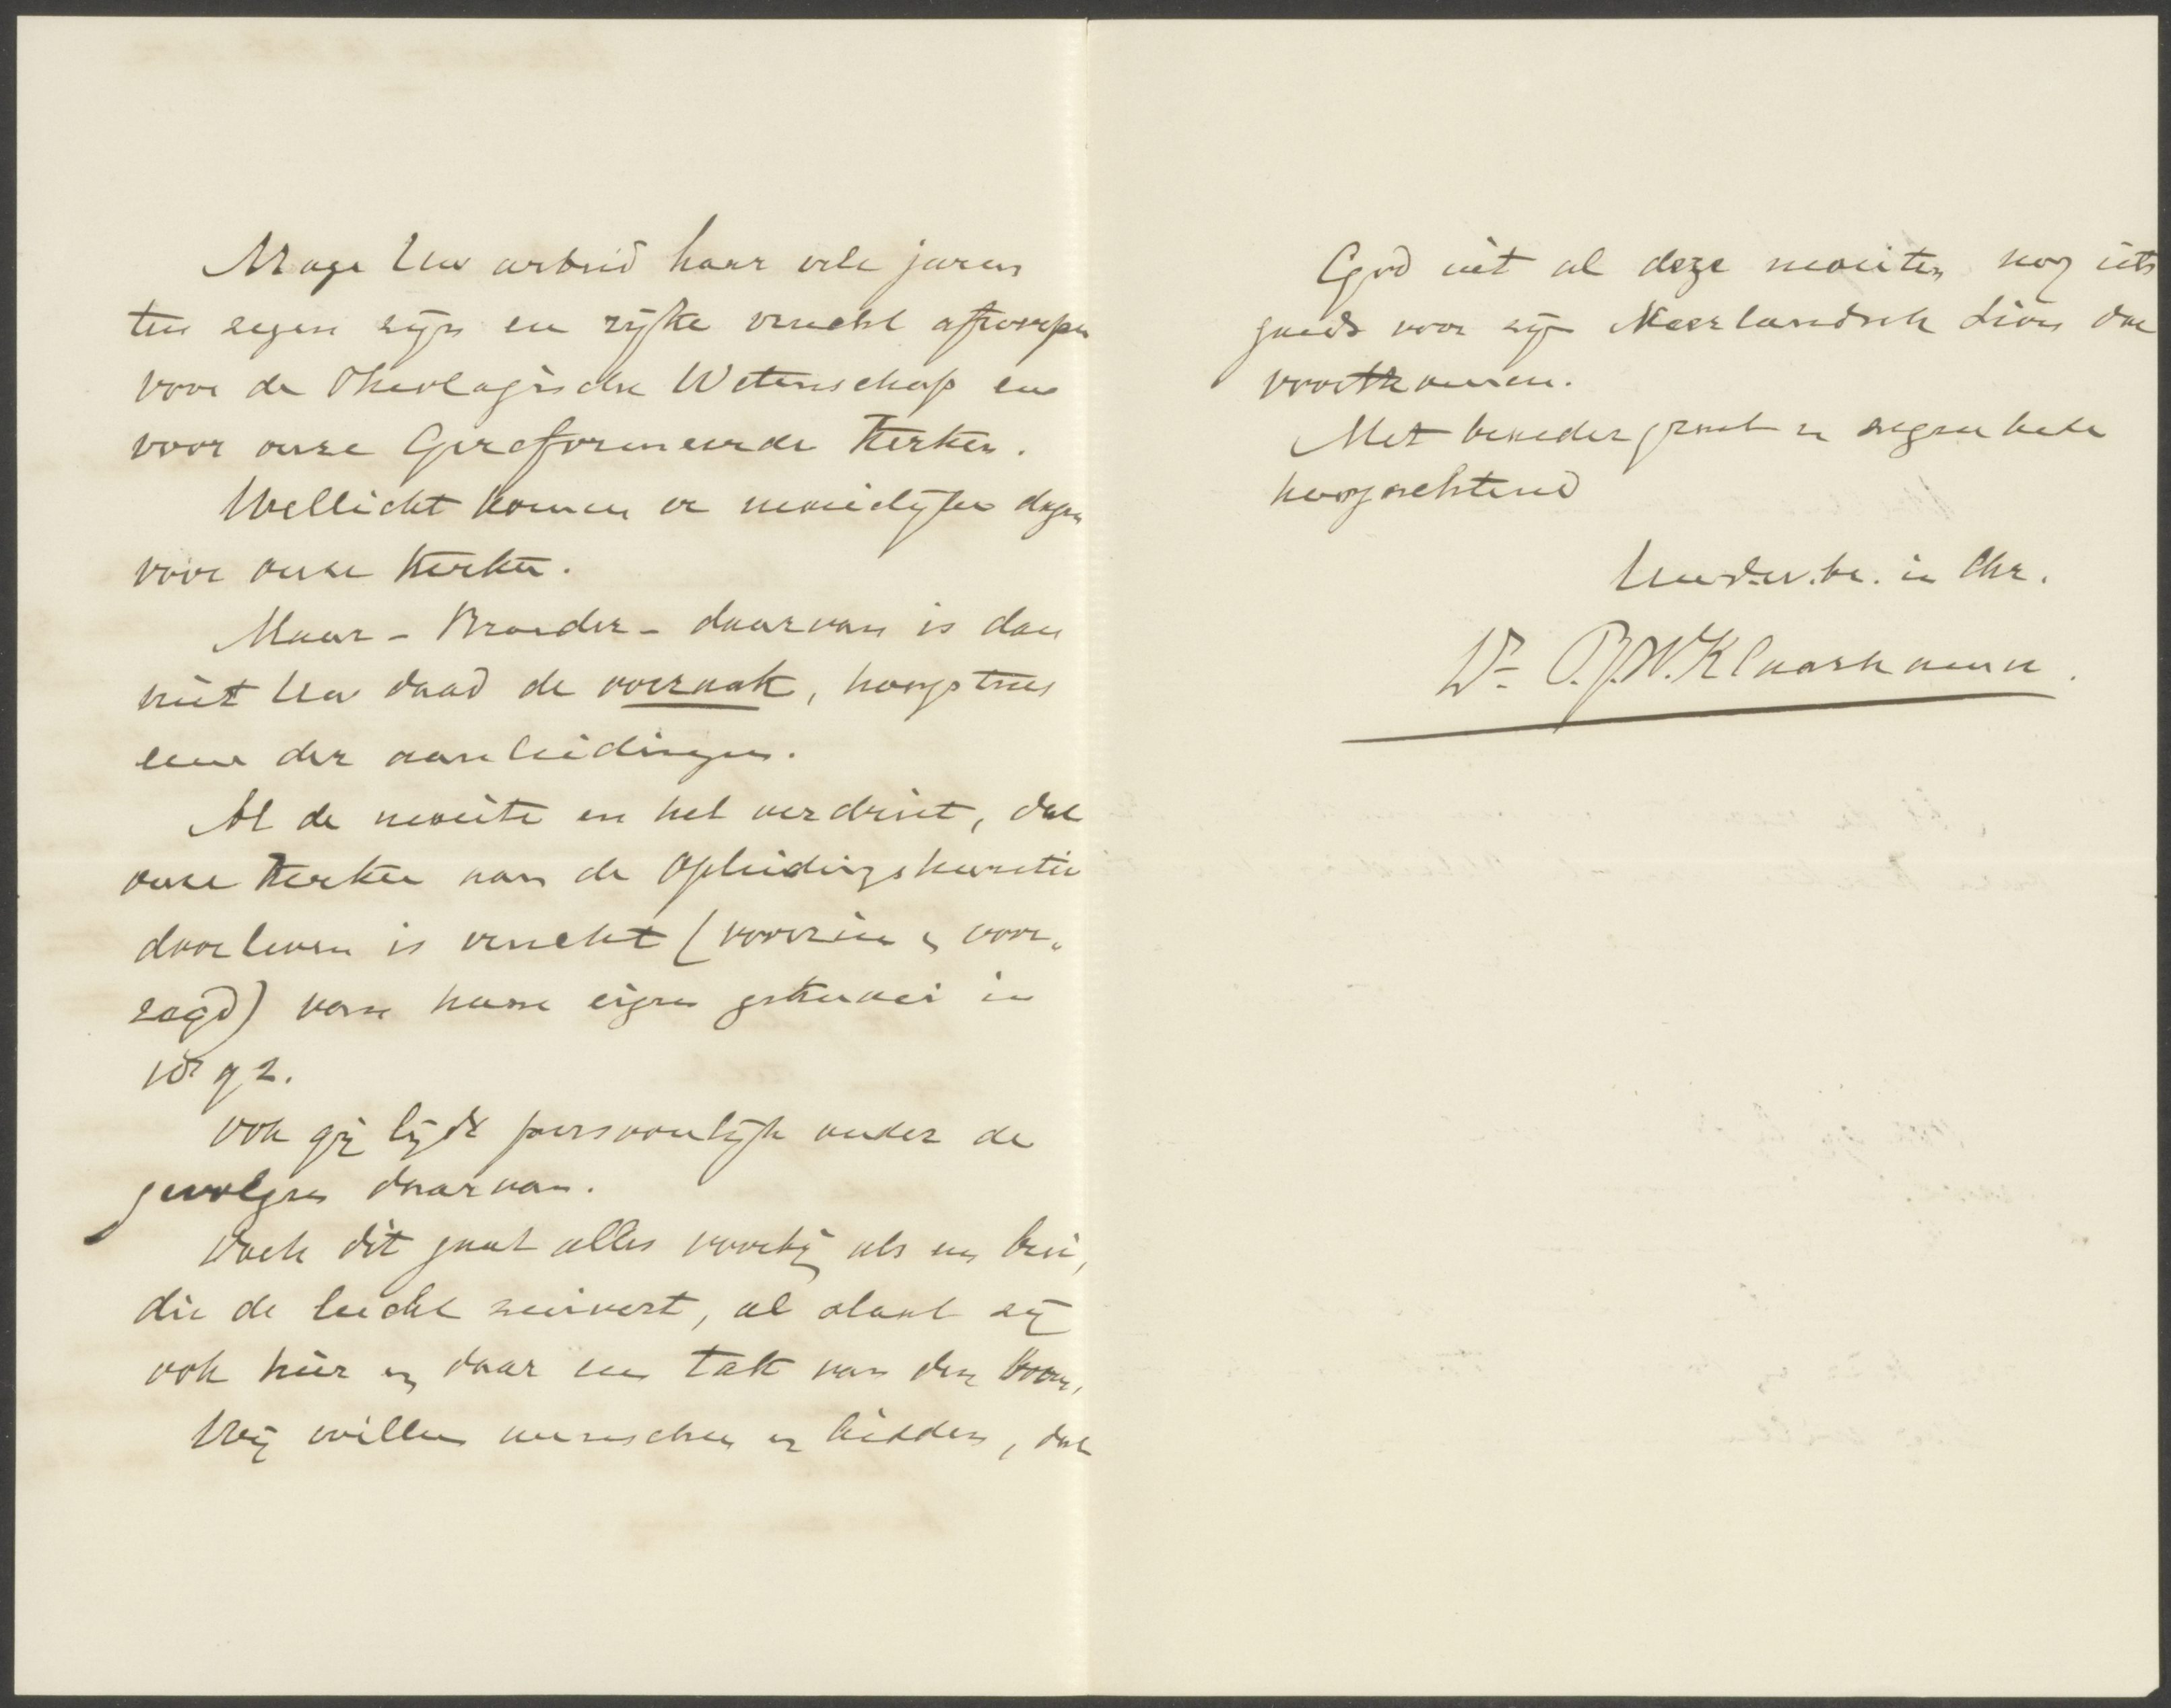 Moge Uw arbeid haar vele jaren
ten zegen zijn en rijke vrucht afwerpen
voor de Theologische Wetenschap en
voor onze Gereformeerde Kerken.
Wellicht komen er moeielijke dagen
voor onze Kerken.
Maar - Broeder - daarvan is dan
niet Uw daad de oorzaak, hoogstens
eene der aanleidingen.
Al de moeite en het verdriet, dat
onze Kerken van de Opleidingskwestie
doorleven is vrucht (voorzien en voor„
zegd) van hunne eigen in
1892.
Ook gij lijdt persoonlijk onder de
gevolgen daarvan.
Doch dit gaat alles voorbij als een bui,
die de lucht zuivert, al slaat zij
ook hier en daar een tak van den boom.
Wij willen wenschen en bidden, dat
God uit al deze moeiten nog iets
goeds voor zijn Neerlandsch Sion doe
voortkomen.
Met broedergroet en zegenbede
hoogachtend
Uw dw. br. in Chr.
Dr P.J.W. Klaarhamer.